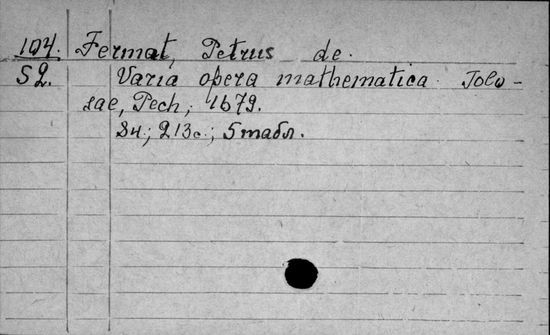 104. Fermat, Petrus de.
52. Varia opera mathematica. Tolo-
sae, Pech, 1679.
8н.; 213с.; 5 табл.